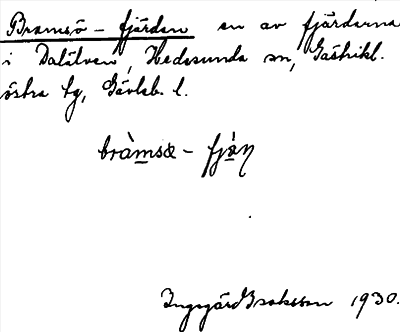 Bramsö-fjärden en av fjärdarna
i Dalälven, Hedesunda sn, Gästrikl.
östra tg, Gävleb. l.
bràmsœ-fjàn̩
Ingegärd Isaksson 1930.